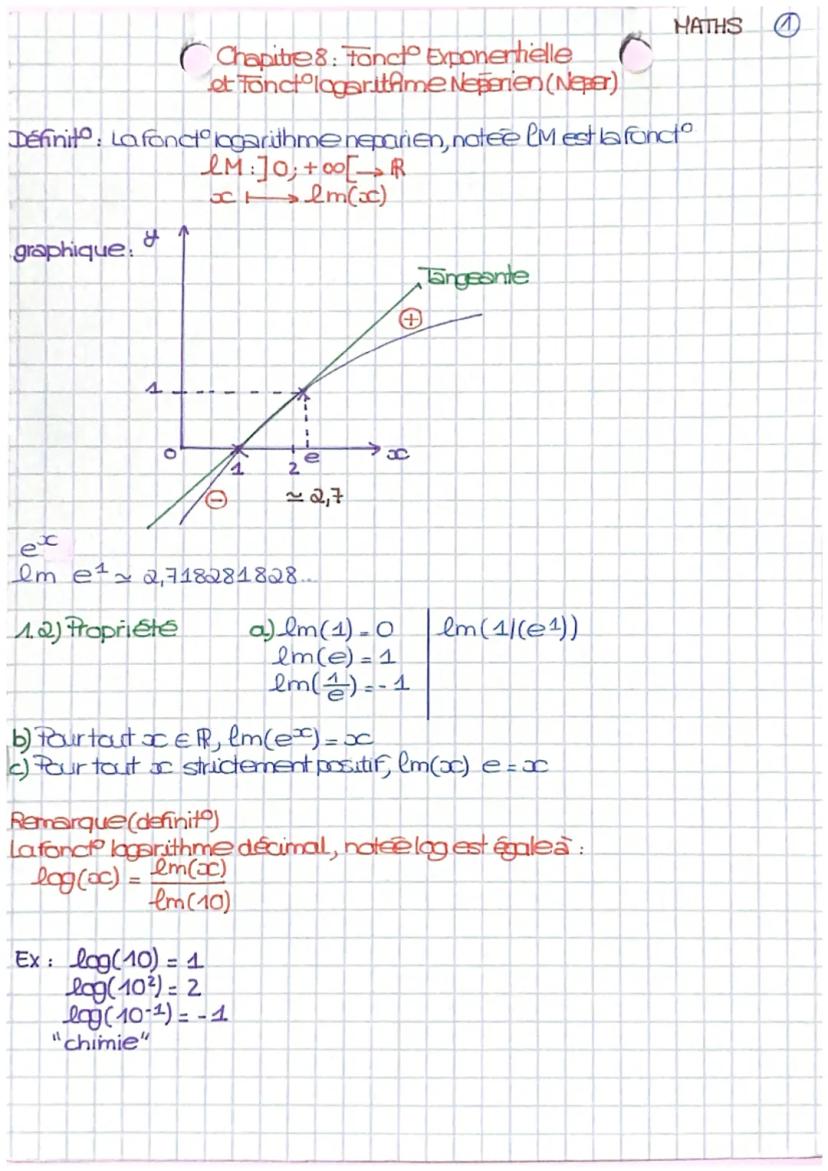 MATHS 1
Chapitre 8 : Fonct° Exponentielle
et Fonct° logarithme Neperien (Neper)
Définit° : La fonct° logarithme neparien, notée lM est la fonct°
lM : ]0; +∞[ → ℝ
x ⟼ lm(x)
graphique : y
Tangeante
⊕
1
0 1 2 e x
⊖ ≃ 2,7
e^x
lm e^1 ≃ 2,718281828...
1.2) Propriété a) lm(1) = 0 | lm(1/(e^1))
lm(e) = 1
lm(1/e) = -1
b) Pour tout x ∈ ℝ, lm(e^x) = x
c) Pour tout x strictement positif, lm(x) e = x
Remarque (definit°)
La fonct° logarithme décimal, notée log est égale à :
log(x) = lm(x)/lm(10)
Ex : log(10) = 1
log(10²) = 2
log(10^-1) = -1
"chimie"